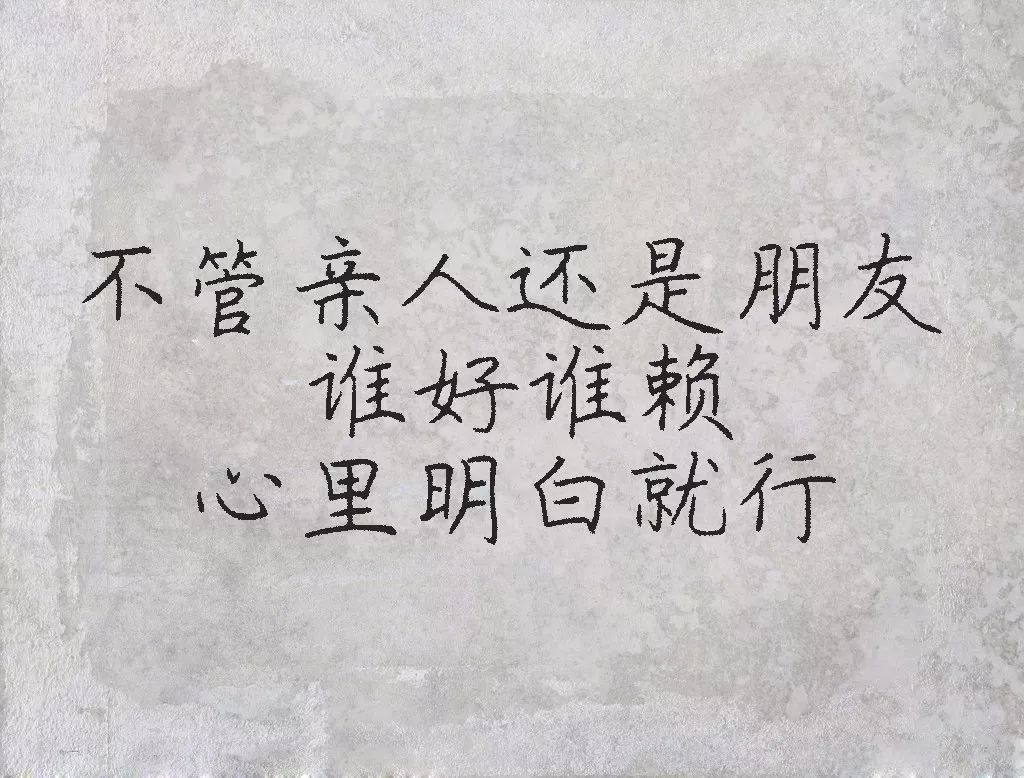 不管亲人还是朋友
谁好谁赖
心里明白就行